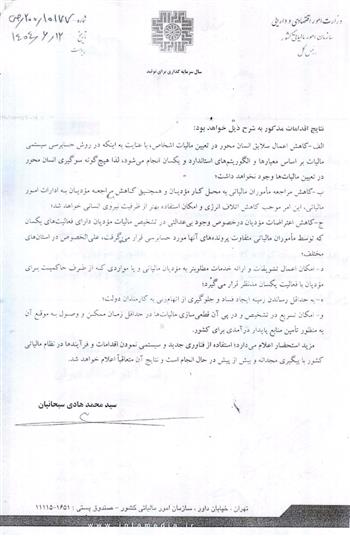 وزارت امور اقتصادی و دارایی
سازمان امور مالیاتی کشور
رئیس کل
شماره: ۲۰۰/۱۰۱۷۷/ص
تاریخ ۱۴۰۴/۶/۱۲
سال سرمایه گذاری برای تولید
نتایج اقدامات مذکور به شرح ذیل خواهد بود:
الف-کاهش اعمال سلایق انسان محور در تعیین مالیات اشخاص، با عنایت به اینکه در روش حسابرسی سیستمی
مالیات بر اساس معیارها و الگوریتم‌های استاندارد و یکسان انجام می‌شود، لذا هیچ‌گونه سوگیری انسان محور
در تعیین مالیات‌ها وجود نخواهد داشت؛
ب-کاهش مراجعه مأموران مالیاتی به محل کار مؤدیان و همچنین کاهش مراجعه مؤدیان به ادارات امور
مالیاتی، این امر موجب کاهش اتلاف انرژی و امکان استفاده بهتر از ظرفیت نیروی انسانی خواهد شد؛
ج-کاهش اعتراضات مؤدیان درخصوص وجود بی‌عدالتی در تشخیص مالیات مؤدیان دارای فعالیت‌های یکسان
که توسط مأموران مالیاتی متفاوت پرونده‌های آنها مورد حسابرسی قرار می‌گرفت، علی‌الخصوص در استان‌های
مختلف؛
د- امکان اعمال تشویقات و ارائه خدمات مطلوبتر به مؤدیان مالیاتی و یا مواردی که از طرف حاکمیت برای
مؤدیان با فعالیت یکسان مدنظر قرار می‌گیرد؛
ه- به حداقل رساندن زمینه ایجاد فساد و جلوگیری از اتهام‌زنی به کارمندان دولت؛
و- امکان تسریع در تشخیص و در پی آن قطعی‌سازی مالیات‌ها در حداقل زمان ممکن و وصول به موقع آن
به منظور تأمین منابع پایدار درآمدی برای کشور.
مزید استحضار اعلام می‌دارد؛ استفاده از فناوری جدید و سیستمی نمودن اقدامات و فرآیندها در نظام مالیاتی
کشور با پیگیری مجدانه و بیش از پیش در حال انجام است و نتایج آن متعاقباً اعلام خواهد شد.
سید محمد هادی سبحانیان
تهران، خیابان داور، سازمان امور مالیاتی کشور - صندوق پستی: ۱۶۵۱-۱۱۱۱۵
www.intamedia.ir